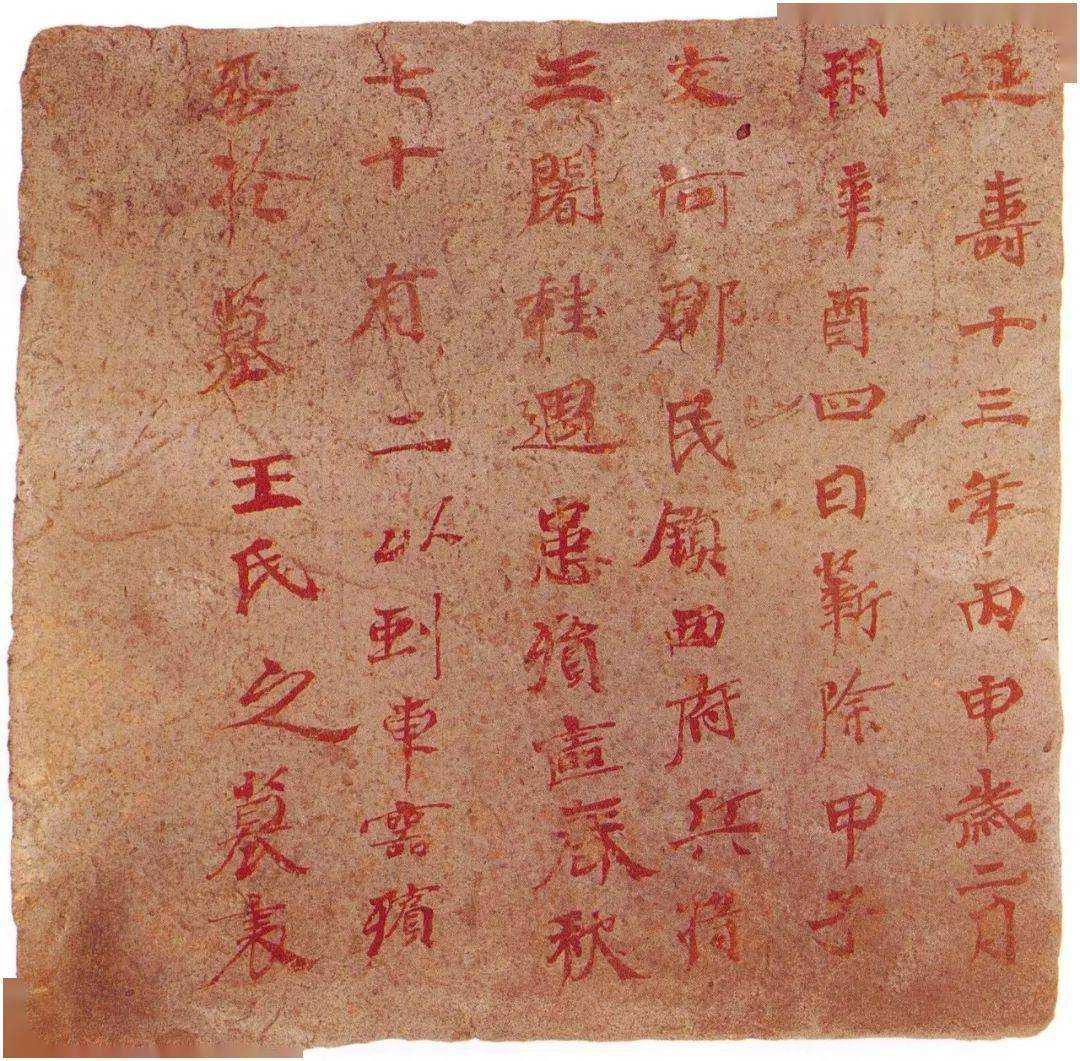 延壽十三年丙申歲二月
朔辛酉四日薪除甲子
交河郡民鎮西府兵將
王闍桂遇患殞喪春秋
七十有二以車靈殯
於墓王氏之墓表